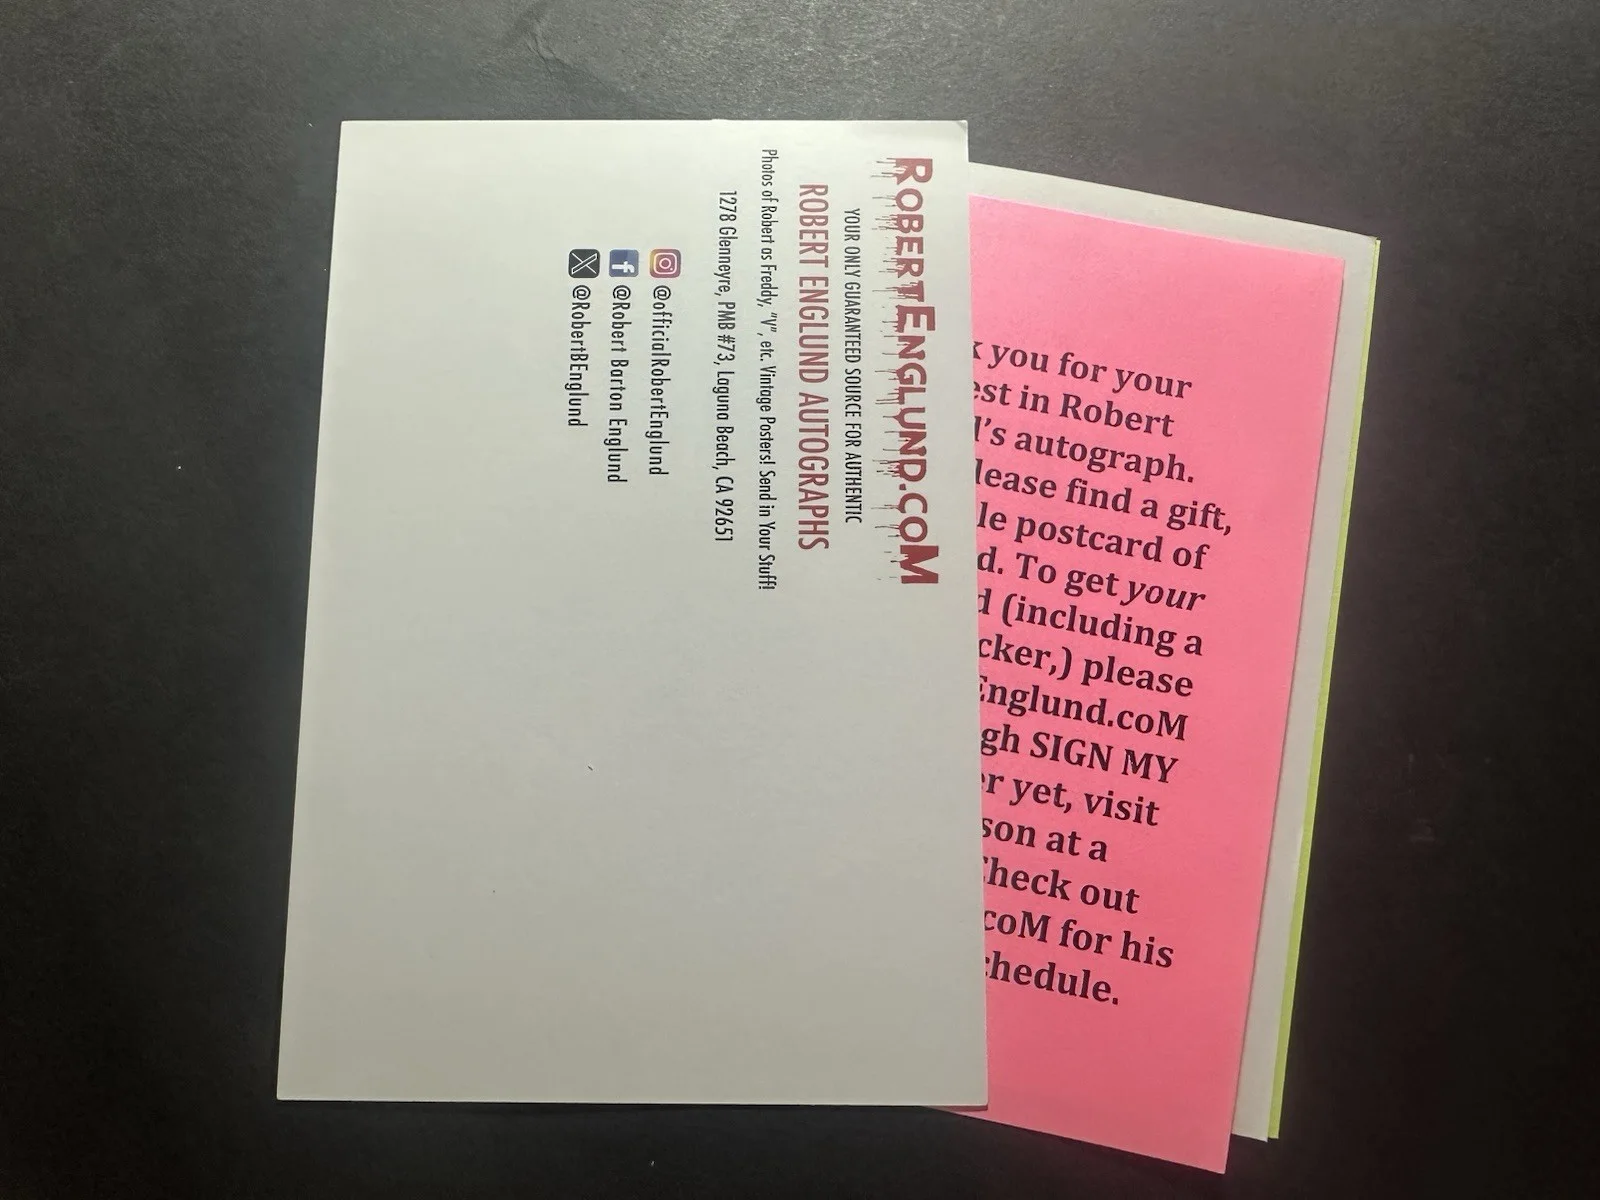 RobertEnglund.coM
YOUR ONLY GUARANTEED SOURCE FOR AUTHENTIC
ROBERT ENGLUND AUTOGRAPHS
Photos of Robert as Freddy, "V", etc. Vintage Posters! Send in Your Stuff!
1278 Glenneyre, PMB #73, Laguna Beach, CA 92651
@officialRobertEnglund
@Robert Barton Englund
@RobertBEnglund
k you for your
est in Robert
l's autograph.
lease find a gift,
le postcard of
d. To get your
d (including a
cker,) please
Englund.coM
gh SIGN MY
er yet, visit
son at a
Check out
coM for his
chedule.